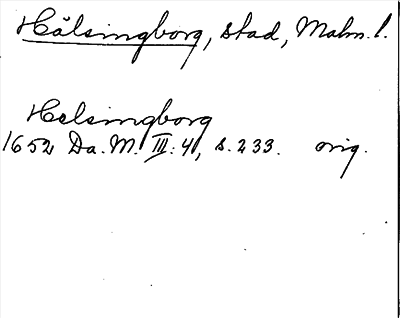 Hälsingborg, stad, Malm. l.
Helsingborg
1652 Da. M. III: 4, s. 233. orig.